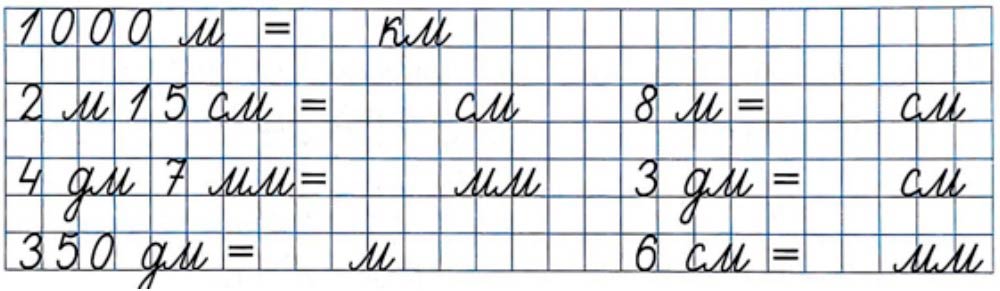 1000 м = км
2 м 15 см = см 8 м = см
4 дм 7 мм = мм 3 дм = см
350 дм = м 6 см = мм